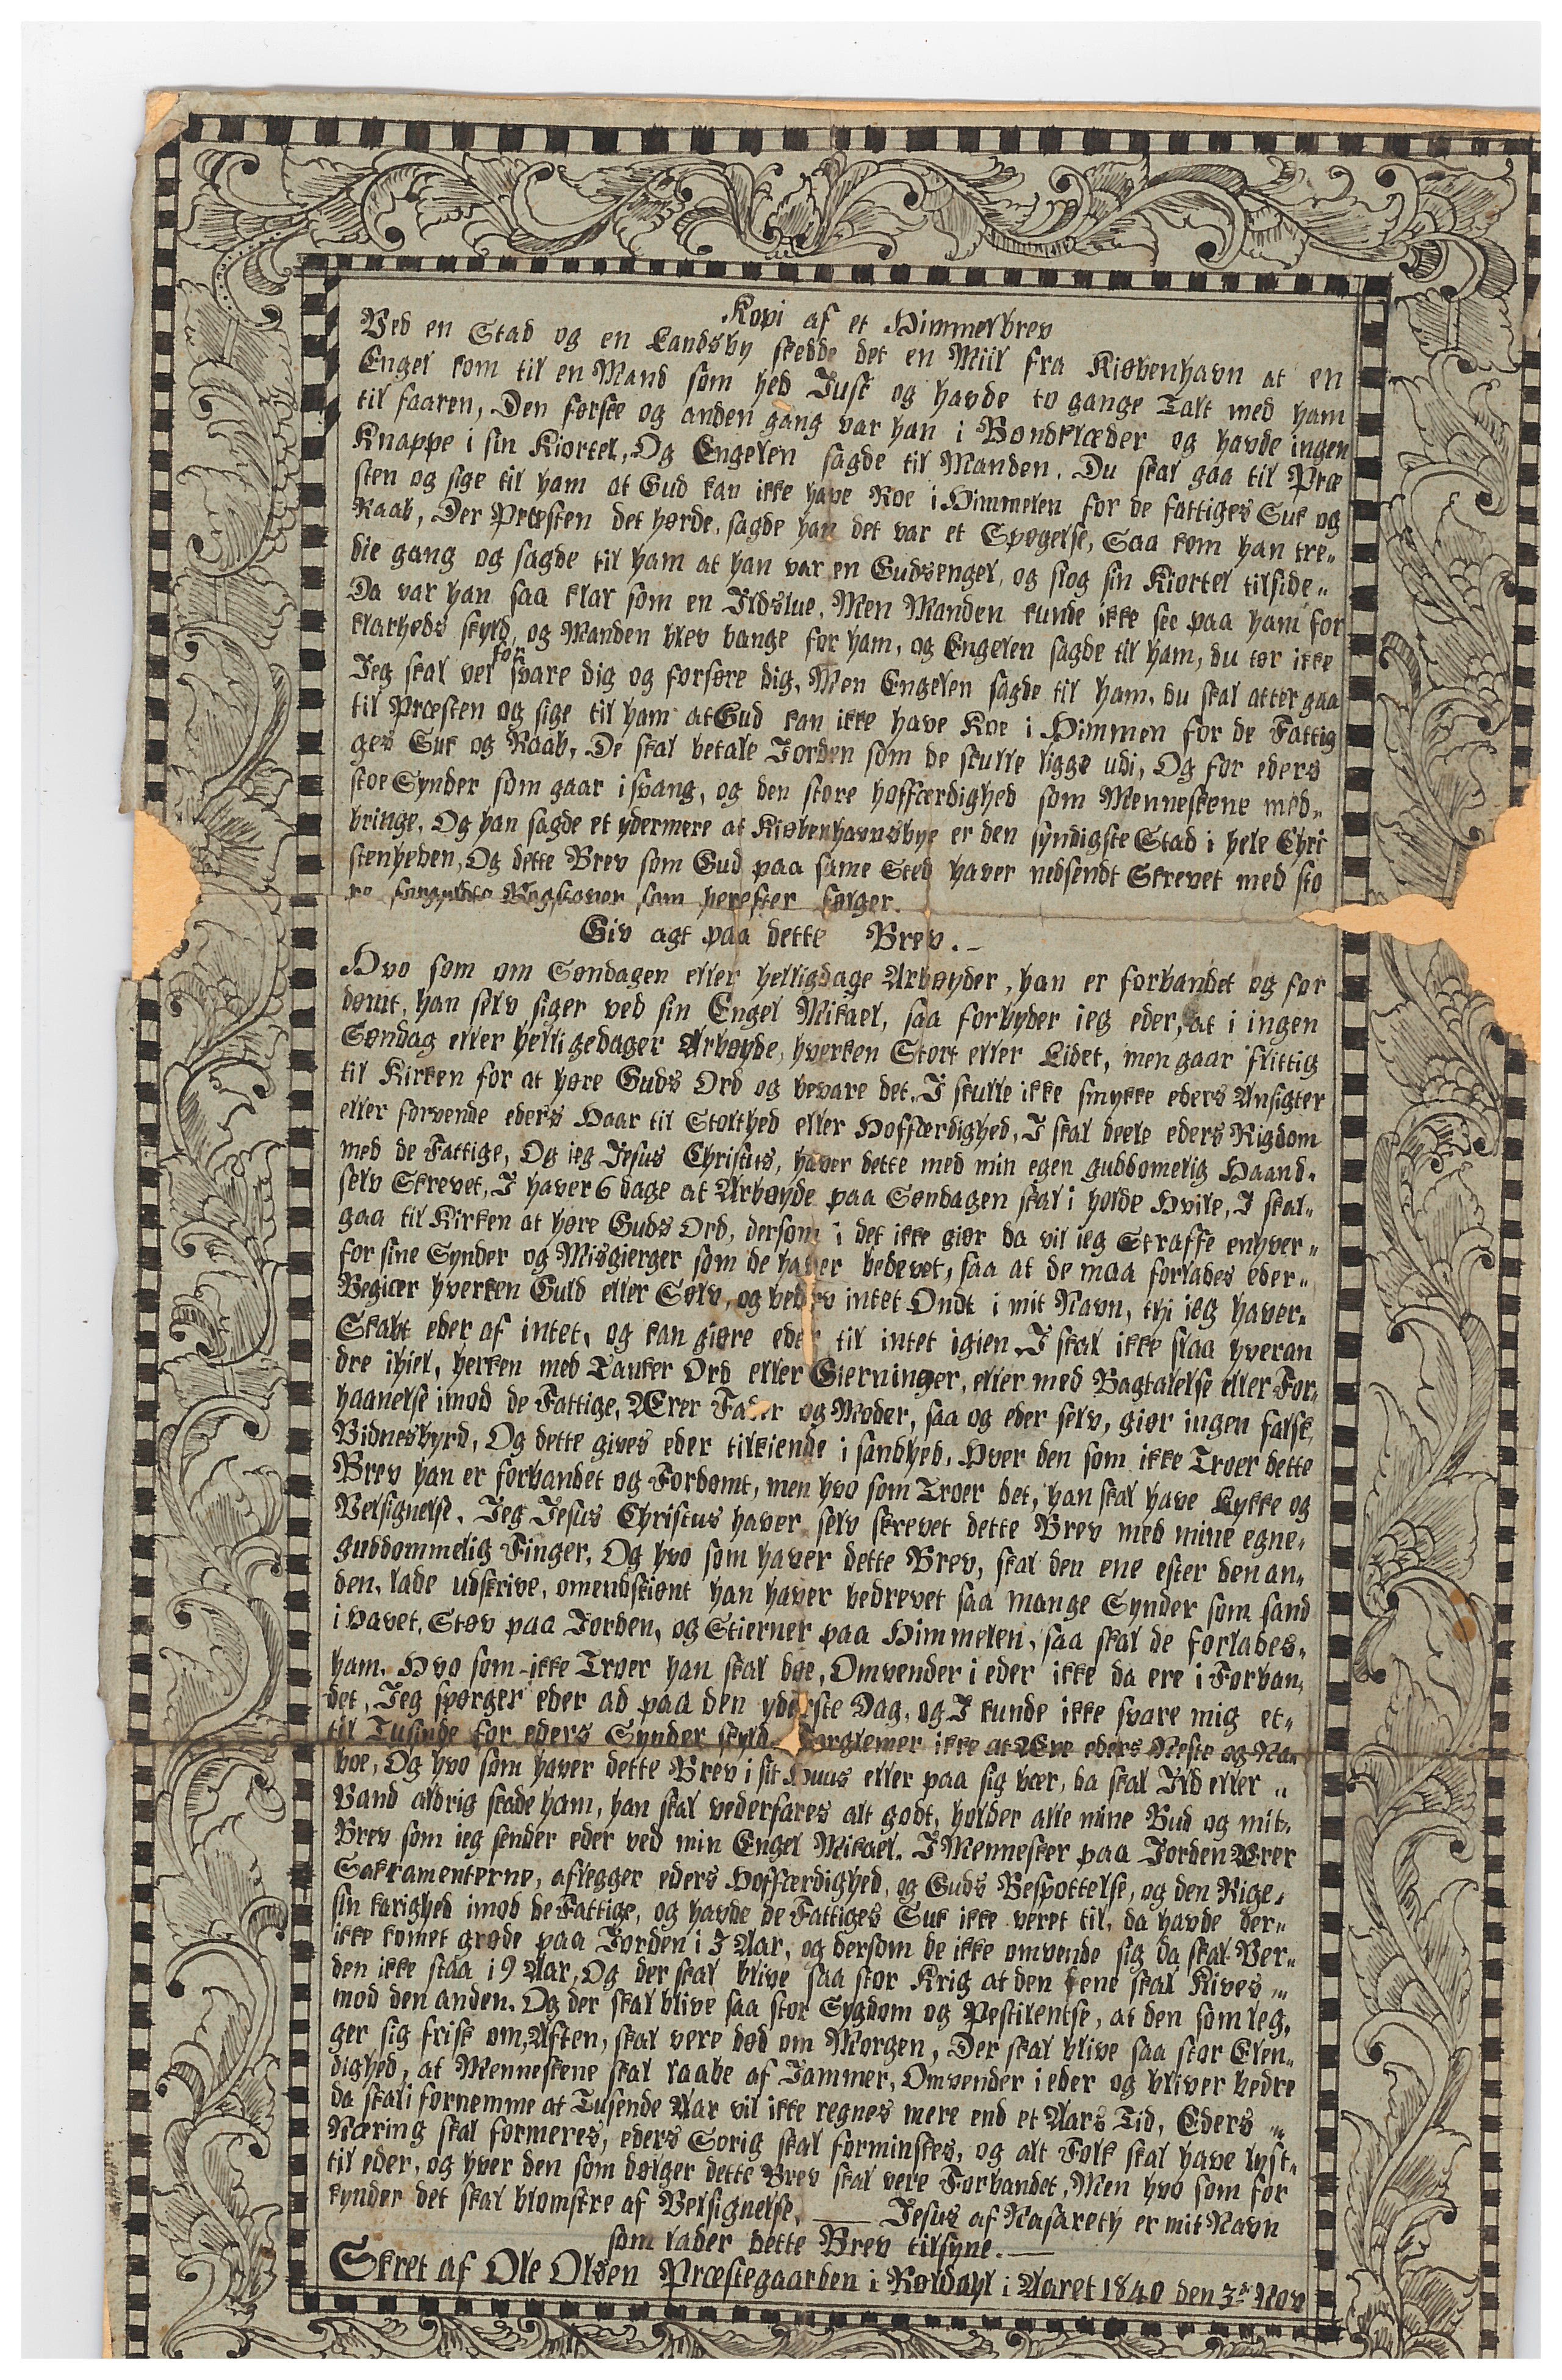 Kopi af et Himmelbrev
Ved en Stad og en Landsby skedde det en Miil fra Kiøbenhavn at en
Engel kom til en Mand som hed Just og havde to gange Talt med ham
til faaren, Den førske og anden gang var han i Bondklæder og havde ingen
Knappe i sin Kiortel, Og Engelen sagde til Manden. Du skal gaa til Præ
sten og sige til ham at Gud kan ikke have Roe i Himmelen for de fattiges Suk og
Raab, Der Præsten det hørde, sagde han det var et Spøgelse, Saa kom han tre„
die gang og sagde til ham at han var en Gudsengel, og slog sin Kiortel tilside„
Da var han saa klar som en Ildslue. Men Manden kunde ikke see paa ham for
klarheds skyld, og Manden blev bange for ham, og Engelen sagde til ham, du tør ikke
Jeg skal vel for svare dig og forføre dig, Men Engelen sagde til ham, du skal atter gaa
til Præsten og sige til ham at Gud kan ikke have Roe i Himmen for de Fattig
ges Suk og Raab, De skal betale Jorden som de skulle ligge udi, Og for eders
stoe Synder som gaar i svang, og den store hoffærdighed som Menneskene med„
bringe, Og han sagde et ydermere at Kiøbenhavnsbye er den syndigste Stad i hele Chri
stenheden, Og dette Brev som Gud paa same Sted haver nedsendt Skrevet med sto
re forgyldte Bogstaver som herefter følger.
Giv agt paa dette Brev. –
Hvo som om Søndagen eller helligdage Arbøyder, han er forbandet og for
dømt, han selv siger ved sin Engel Mikael, saa forbyder ieg eder, at i ingen
Søndag eller helligedager Arbøyde, hverken Stort eller Lidet, men gaar flittig
til Kirken for at høre Guds Ord og bevare det, I skulle ikke smykke eders Ansigter
eller forvende eders Haar til Stolthed eller Hoffærdighed, I skal deele eders Rigdom
med de Fattige, Og ieg Jesus Christus, haver dette med min egen guddomelig Haand„
selv Skrevet, I haver 6 dage at Arbøyde paa Søndagen skal i holde Hvile, I skal„
gaa til Kirken at høre Guds Ord, dersom i det ikke giør da vil ieg Straffe enhver„
for sine Synder og Misgierger som de haver bedevet, saa at de maa forlades eder„
Begiær hverken Guld eller Sølv, og bedriv intet Ondt i mit Navn, thi ieg haver„
Skabt eder af intet, og kan giøre eder til intet igien, I skal ikke slaa hveran
dre ihiel, herken med Tanker Ord eller Gierninger, eller med Bagtalelse eller For„
haanelse imod de Fattige, Ærer Fader og Moder, saa og eder selv, giør ingen falsk
Vidnesbyrd, Og dette gives eder tilkiende i sandhed, Hver den som ikke Troer dette
Brev han er forbandet og Fordømt, men hvo som Troer det, han skal have Lykke og
Velsignelse, Jeg Jesus Christus haver selv skrevet dette Brev med mine egne„
guddommelig Finger, Og hvo som haver dette Brev, skal den ene efter den an„
den, lade udskrive, omendskiønt han haver bedrevet saa mange Synder som sand
i Havet, Støv paa Jorden, og Stierner paa Himmelen, saa skal de forlades„
ham. Hvo som ikke Troer han skal døe, Omvender i eder ikke da ere i Forban„
det, Jeg spørger eder ad paa den yderste Dag, og I kunde ikke svare mig et„
til Tusinde for eders Synder skyld, Forglemer ikke at Ære eders Neste og Na„
boe, Og hvo som haver dette Brev i sit Huus eller paa sig bær, da skal Ild eller „
Vand aldrig skade ham, han skal vederfares alt godt, holder alle mine Bud og mit„
Brev som ieg sender eder ved min Engel Mikael. I Mennesker paa Jorden Ærer
Sakramenterne, aflegger eders Hoffærdighed, og Guds Bespottelse, og den Rige„
sin karighed imod de Fattige, og havde de Fattiges Suk ikke veret til, da havde der„
ikke komet grøde paa Jorden i 3 Aar, og dersom de ikke omvende sig da skal Ver„
den ikke staa i 9 Aar, Og der skal blive saa stor Krig at den ene skal Kives „
mod den anden. Og der skal blive saa stor Sygdom og Pestilentse, at den som leg„
ger sig frisk om, Aften, skal vere død om Morgen, Der skal blive saa stor Elen„
dighed, at Menneskene skal raabe af Jammer, Omvender i eder og bliver bedre
da skal i fornemme at Tusende Aar vil ikke regnes mere end et Aars Tid, Eders „
Næring skal formeres, eders Sorig skal forminskes, og alt Folk skal have lyst„
til eder, og hver den som dølger dette Brev skal vere Forbandet, Men hvo som for
kynder det skal blomstre af Velsignelse, — Jesus af Nasareth er mit Navn
som lader dette Brev tilsyne. —
Skret af Ole Olsen Præstegaarden i Røldahl i Aaret 1840 den 3die Nov